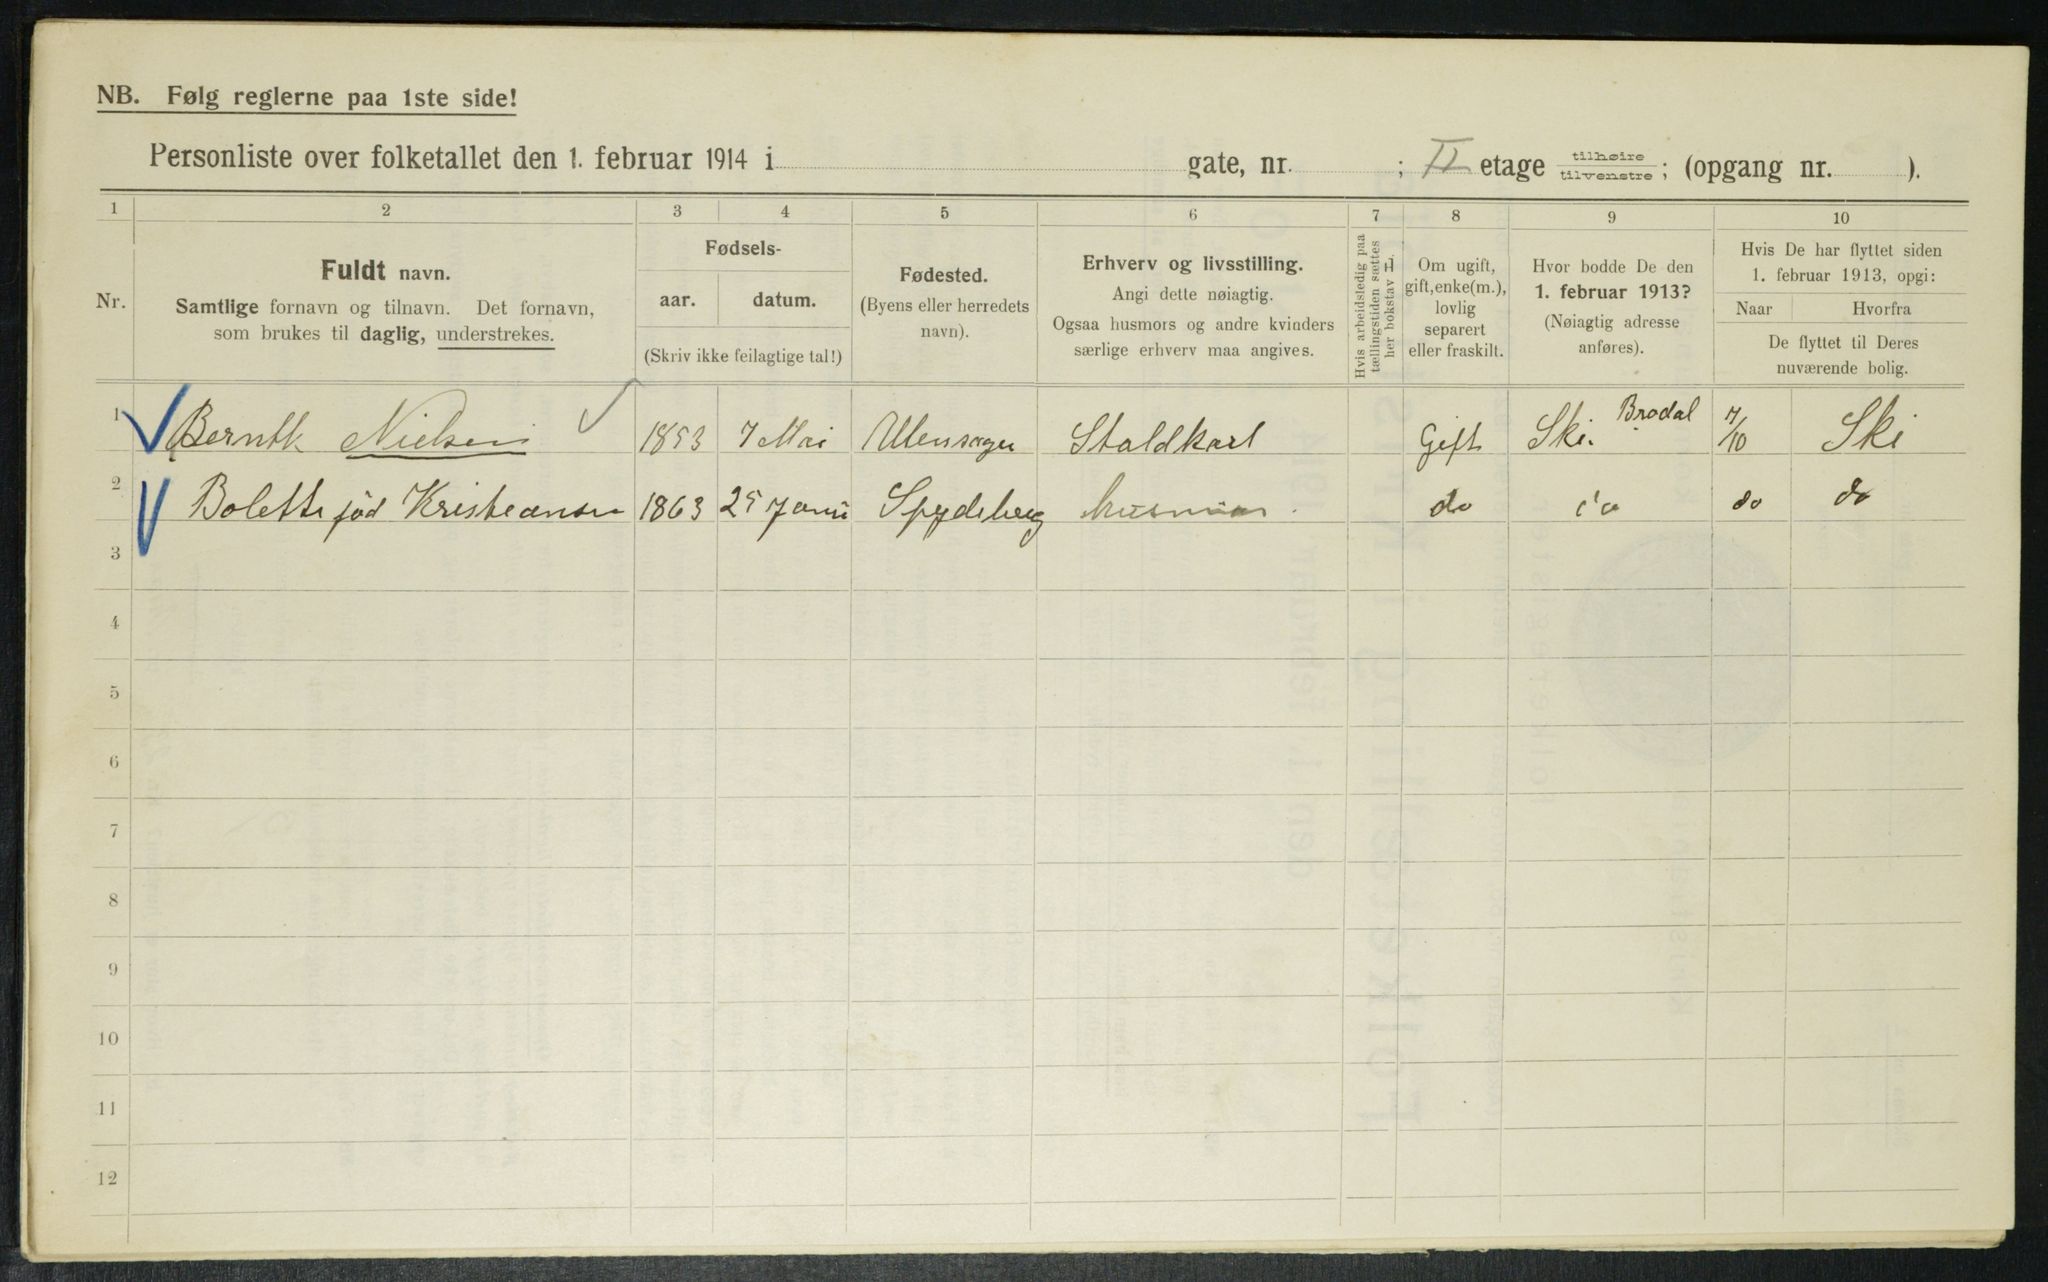 NB. Følg reglerne paa 1ste side!
Personliste over folketallet den 1. februar 1914 i gate, nr. ; II etage tilhøire tilvenstre; (opgang nr. ).
1 2 3 4 5 6 7 8 9 10
Nr.
Fuldt navn.
Samtlige fornavn og tilnavn. Det fornavn,
som brukes til daglig, understrekes.
Fødsels-
aar. datum.
(Skriv ikke feilagtige tal!)
Fødested.
(Byens eller herredets
navn).
Erhverv og livsstilling.
Angi dette nøiagtig.
Ogsaa husmors og andre kvinders
særlige erhverv maa angives.
Hvis arbeidsledig paa
tællingstiden sættes
her bokstav L.
Om ugift,
gift, enke(m.),
lovlig
separert
eller fraskilt.
Hvor bodde De den
1. februar 1913?
(Nøiagtig adresse
anføres).
Hvis De har flyttet siden
1. februar 1913, opgi:
Naar Hvorfra
De flyttet til Deres
nuværende bolig.
1 Bernth Nielsen 1853 7 Mai Ullensager Staldkarl Gift Ski. Brodal 7/10 Ski
2 Bolette fød Kristiansen 1863 25 Spydeberg husmor do do do do
3
4
5
6
7
8
9
10
11
12